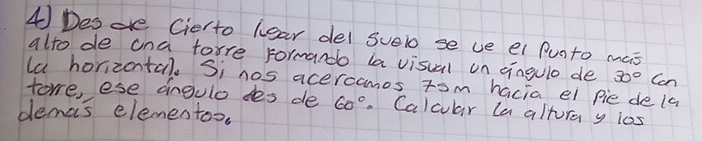 4) Desde cierto lugar del suelo se ve el punto más
alto de una torre formando la visual un ángulo de 30° con
la horizontal. Si nos acercamos 75m hacia el pie de la
torre, ese ángulo es de 60°. Calcular la altura y los
demás elementos.